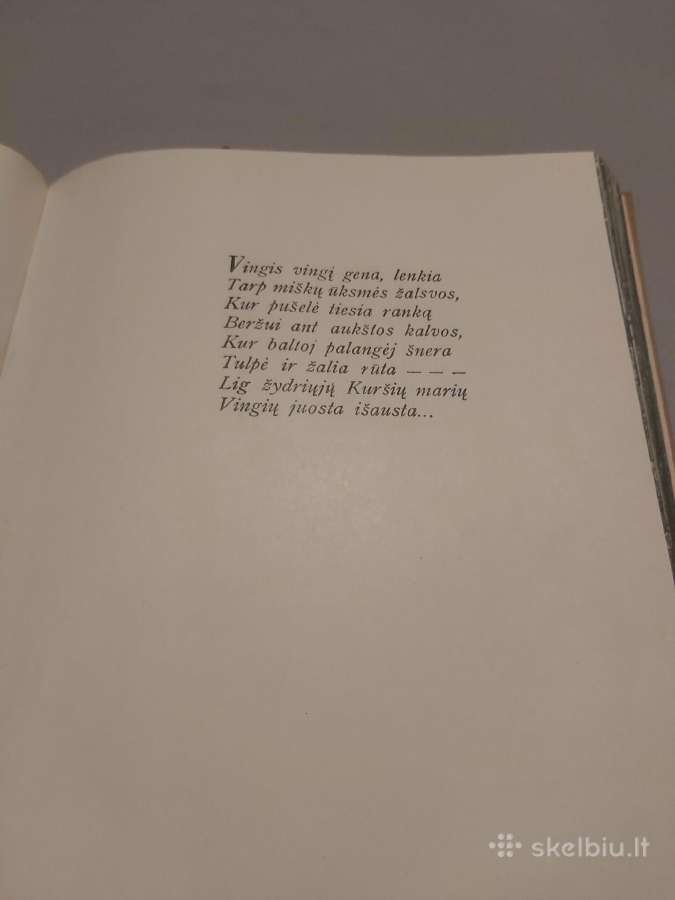 Vingis vingį gena, lenkia
Tarp miškų ūksmės žalsvos,
Kur pušelė tiesia ranką
Beržui ant aukštos kalvos,
Kur baltoj palangėj šnera
Tulpė ir žalia rūta — — —
Lig žydriųjų Kuršių marių
Vingių juosta išausta...
skelbiu.lt